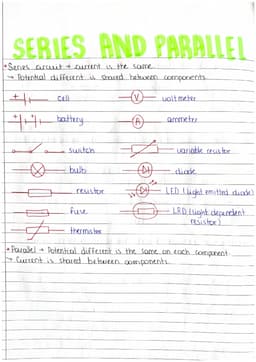 SERIES AND PARALLEL
*Series circuit → current is the same.
→ Potential different is shared between components.
cell
V voltmeter
battery
A ammeter
switch
variable resistor
bulb
diode
resistor
LED (light emitted diode)
fuse
LRD (light dependent
resistor)
thermistor
*Parallel → Potential different is the same on each component.
→ Current is shared between components.